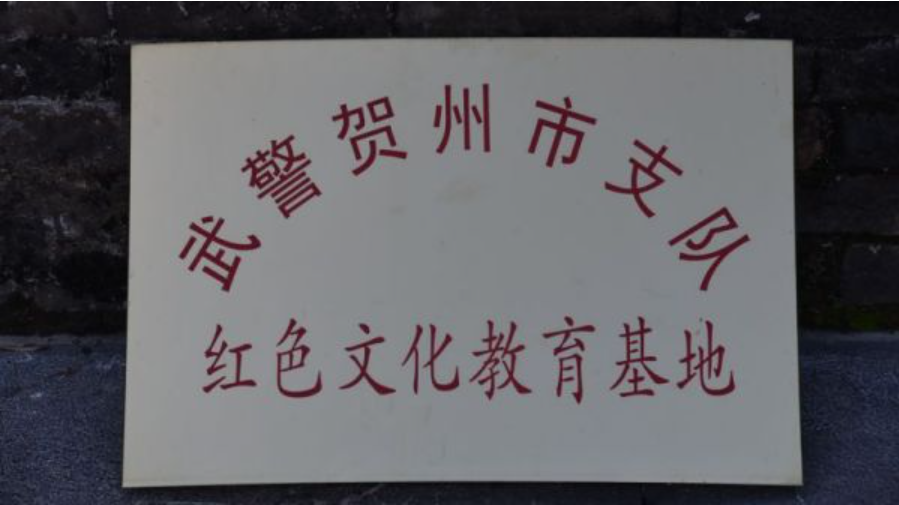 武警贺州市支队
红色文化教育基地